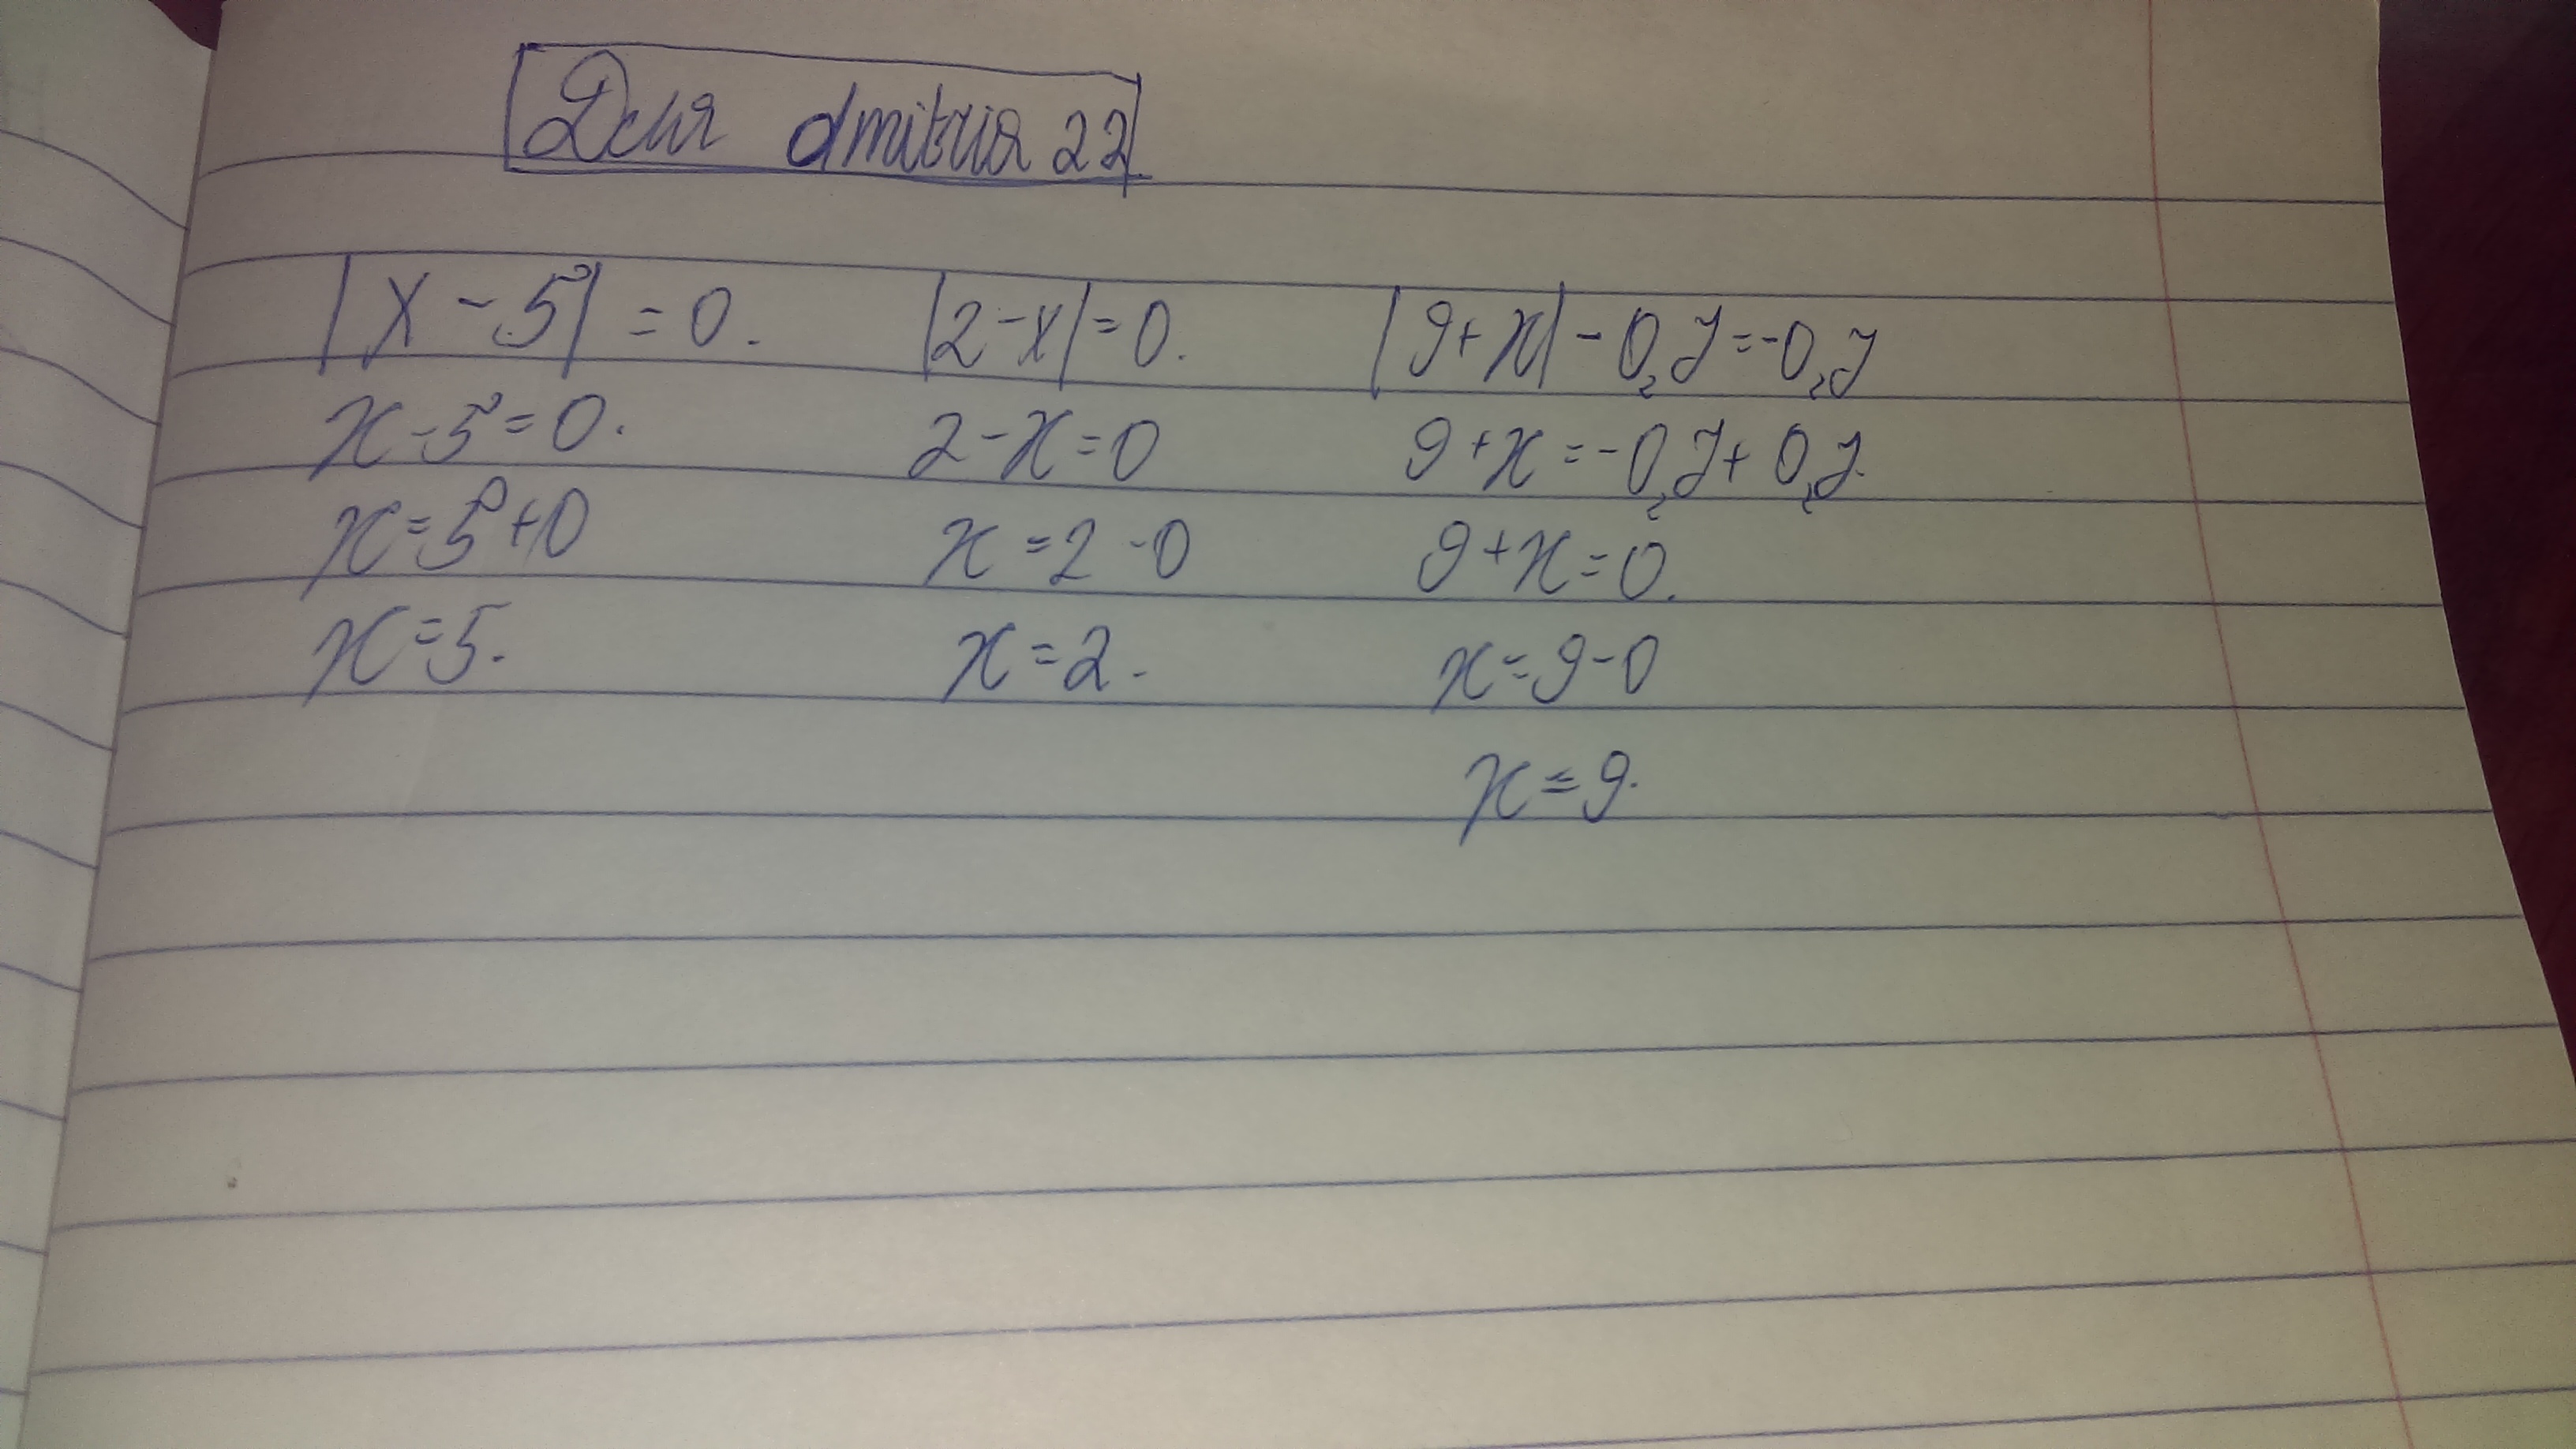 Для dmitria 22
|x - 5| = 0.
x - 5 = 0.
x = 5 + 0
x = 5.
|2 - x| = 0.
2 - x = 0
x = 2 - 0
x = 2.
|9 + x| - 0,7 = -0,7
9 + x = -0,7 + 0,7.
9 + x = 0.
x = 9 - 0
x = 9.